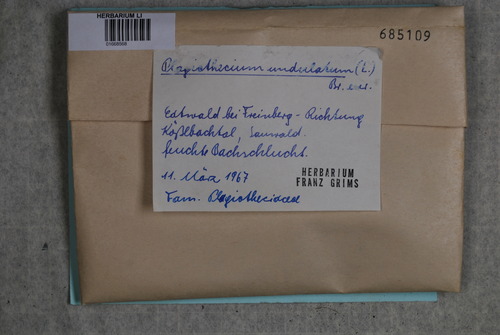 HERBARIUM LI
685109
Plagiothecium undulatum (L.)
Br. eur.
bei Freinberg - Richtung
Kößlbachtal, Sauwald.
feuchte Bachschlucht.
11. März 1967
HERBARIUM
FRANZ GRIMS
Fam. Plagiotheciaceae